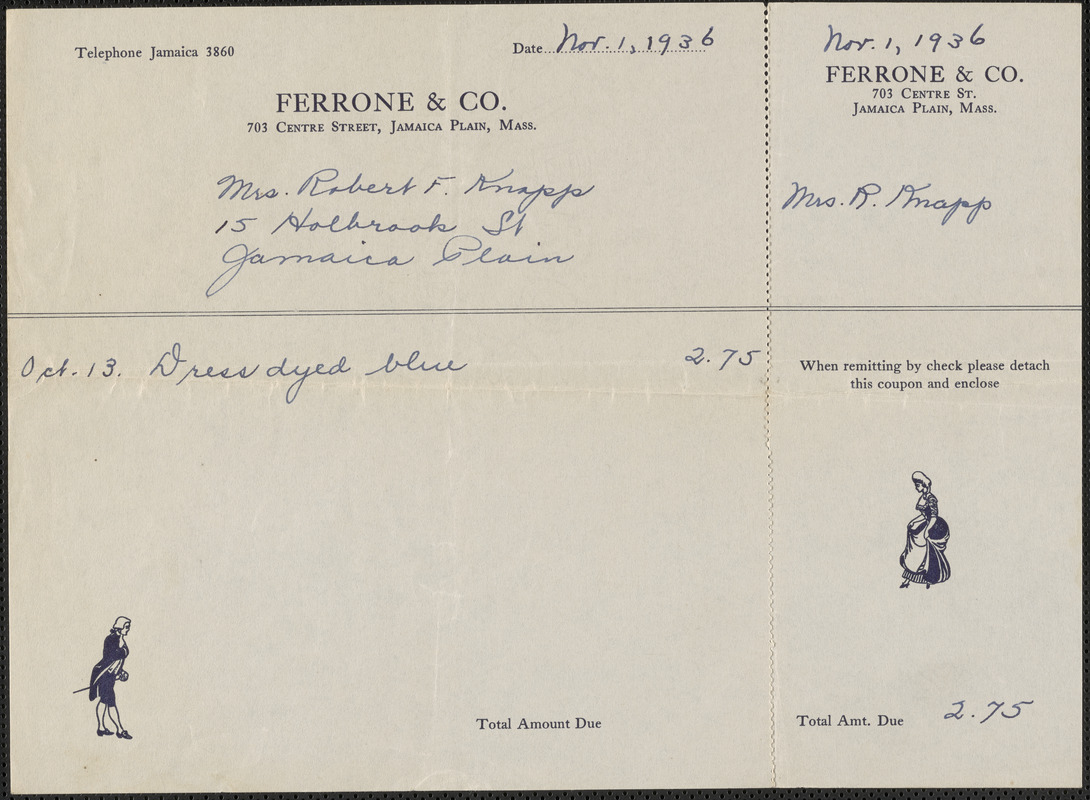 Telephone Jamaica 3860
Date Nov. 1, 1936
FERRONE & CO.
703 CENTRE STREET, JAMAICA PLAIN, MASS.
Mrs. Robert F. Knapp
15 Holbrook St
Jamaica Plain
Oct. 13. Dress dyed blue 2.75
Total Amount Due
Nov. 1, 1936
FERRONE & CO.
703 CENTRE ST.
JAMAICA PLAIN, MASS.
Mrs. R. Knapp
When remitting by check please detach
this coupon and enclose
Total Amt. Due 2.75